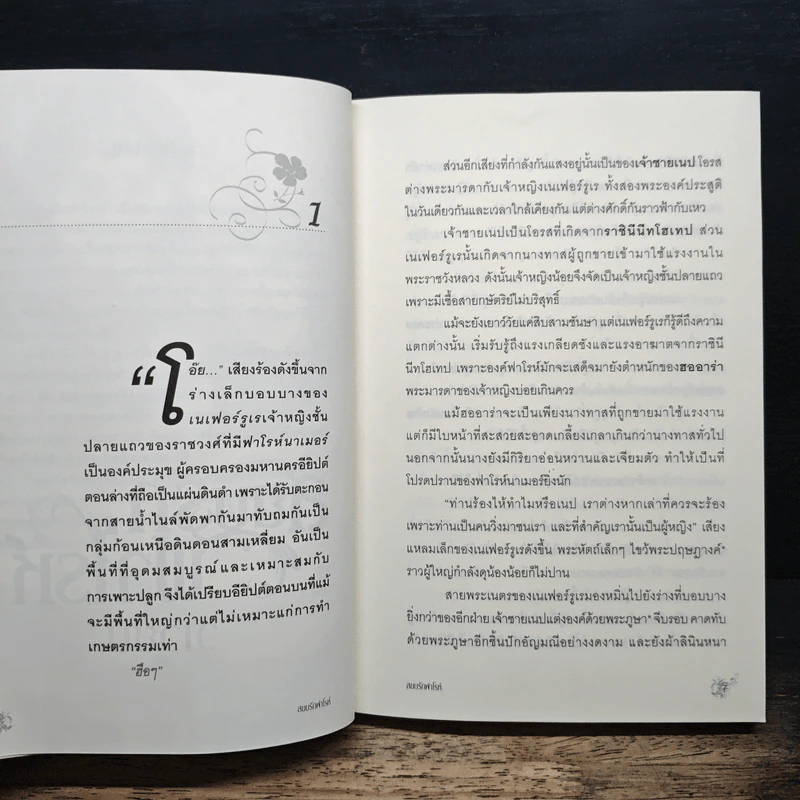 1
“โอ๊ย...” เสียงร้องดังขึ้นจาก
ร่างเล็กบอบบางของ
เนเฟอร์รูเรเจ้าหญิงชั้น
ปลายแถวของราชวงศ์ที่มีฟาโรห์นาเมอร์
เป็นองค์ประมุข ผู้ครอบครองมหานครอียิปต์
ตอนล่างที่ถือเป็นแผ่นดินดำ เพราะได้รับตะกอน
จากสายน้ำไนล์พัดพากันมาทับถมกันเป็น
กลุ่มก้อนเหนือดินดอนสามเหลี่ยม อันเป็น
พื้นที่ที่อุดมสมบูรณ์และเหมาะสมกับ
การเพาะปลูก จึงได้เปรียบอียิปต์ตอนบนที่แม้
จะมีพื้นที่ใหญ่กว่าแต่ไม่เหมาะแก่การทำ
เกษตรกรรมเท่า
“ฮือๆ”
สยบรักฟาโรห์
ส่วนอีกเสียงที่กำลังกันแสงอยู่นั้นเป็นของเจ้าชายเนป โอรส
ต่างพระมารดากับเจ้าหญิงเนเฟอร์รูเร ทั้งสองพระองค์ประสูติ
ในวันเดียวกันและเวลาใกล้เคียงกัน แต่ต่างศักดิ์กันราวฟ้ากับเหว
เจ้าชายเนปเป็นโอรสที่เกิดจากราชินีนีทโฮเทป ส่วน
เนเฟอร์รูเรนั้นเกิดจากนางทาสผู้ถูกขายเข้ามาใช้แรงงานใน
พระราชวังหลวง ดังนั้นเจ้าหญิงน้อยจึงจัดเป็นเจ้าหญิงชั้นปลายแถว
เพราะมีเชื้อสายกษัตริย์ไม่บริสุทธิ์
แม้จะยังเยาว์วัยแค่สิบสามชันษา แต่เนเฟอร์รูเรก็รู้ดีถึงความ
แตกต่างนั้น เริ่มรับรู้ถึงแรงเกลียดชังและแรงอาฆาตจากราชินี
นีทโฮเทป เพราะองค์ฟาโรห์มักจะเสด็จมายังตำหนักของฮออาร่า
พระมารดาของเจ้าหญิงบ่อยเกินควร
แม้ฮออาร่าจะเป็นเพียงนางทาสที่ถูกขายมาใช้แรงงาน
แต่ก็มีใบหน้าที่สะสวยสะอาดเกลี้ยงเกลาเกินกว่านางทาสทั่วไป
นอกจากนั้นนางยังมีกิริยาอ่อนหวานและเจียมตัว ทำให้เป็นที่
โปรดปรานของฟาโรห์นาเมอร์ยิ่งนัก
“ท่านร้องไห้ทำไมหรือเนป เราต่างหากเล่าที่ควรจะร้อง
เพราะท่านเป็นคนวิ่งมาชนเรา และที่สำคัญเรานั้นเป็นผู้หญิง” เสียง
แหลมเล็กของเนเฟอร์รูเรดังขึ้น พระหัตถ์เล็กๆ ไขว้พระปฤษฎางค์*
ราวผู้ใหญ่กำลังดุน้องน้อยก็ไม่ปาน
สายพระเนตรของเนเฟอร์รูเรมองหมิ่นไปยังร่างที่บอบบาง
ยิ่งกว่าของอีกฝ่าย เจ้าชายเนปแต่งองค์ด้วยพระภูษา* จีบรอบ คาดทับ
ด้วยพระภูษาอีกชิ้นปักอัญมณีอย่างงดงาม และยังผ้าลินินหนา
สยบรักฟาโรห์
7